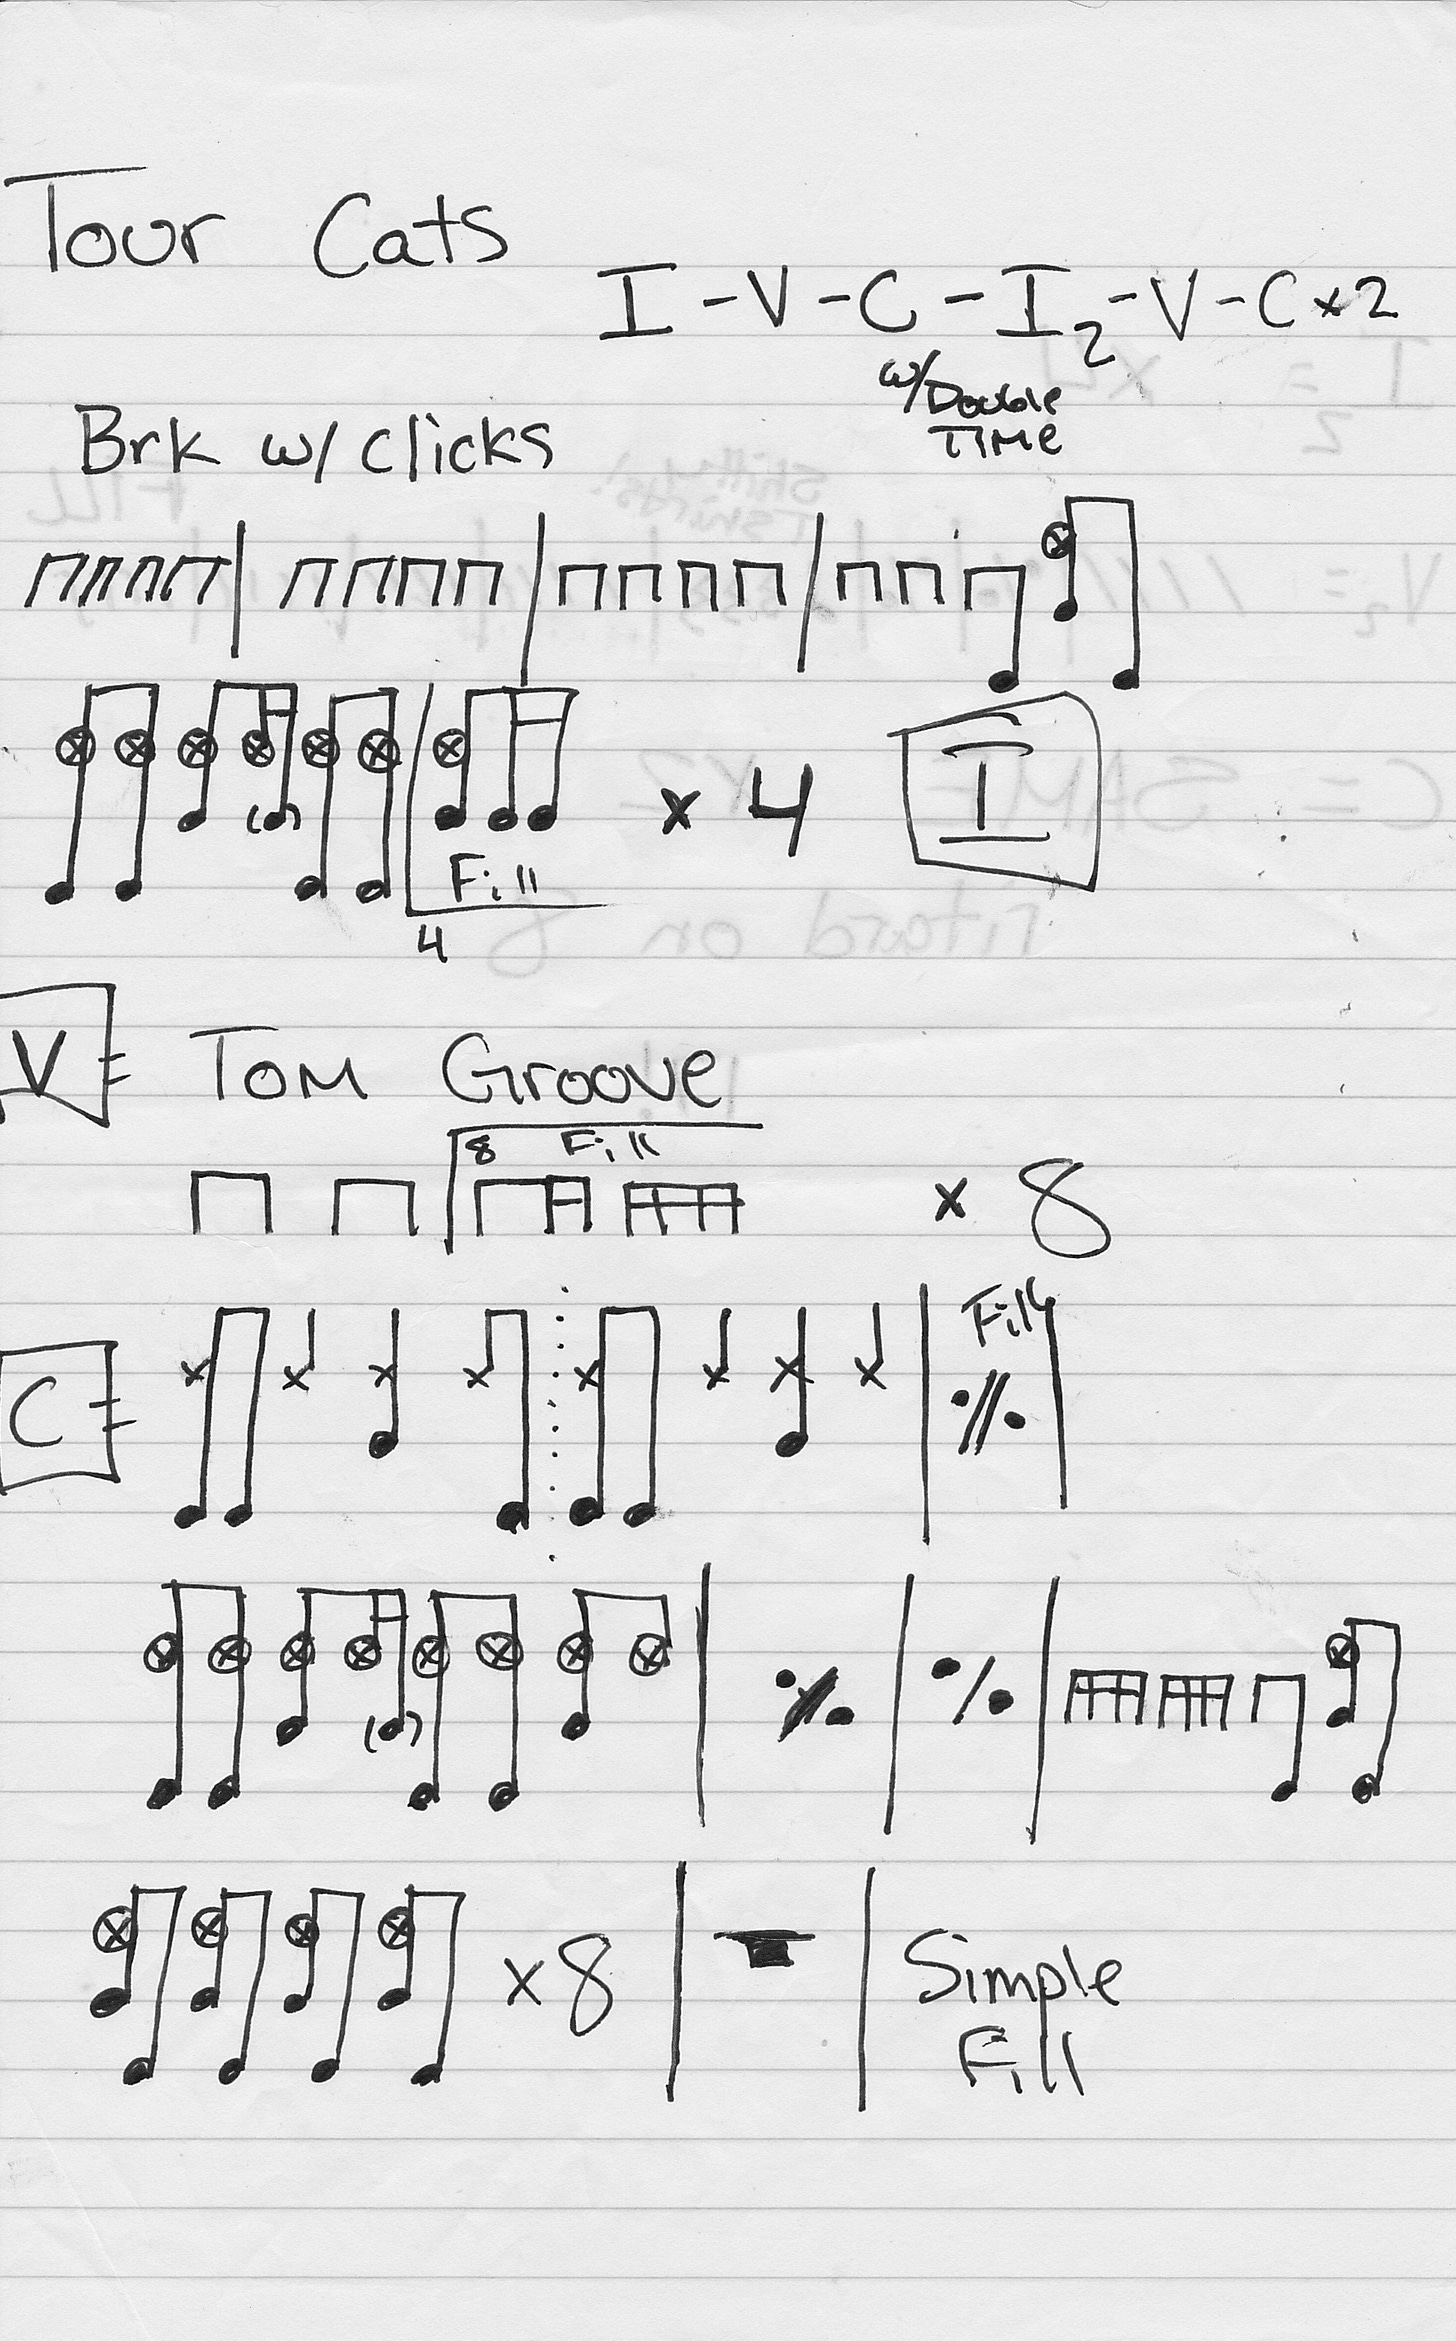 Tour Cats
I - V - C - I2 - V - C x2
w/Double
TIME
Brk w/ clicks
x 4 I
Fill
4
V = Tom Groove
8 Fill
x 8
C =
Fill
x8
Simple
Fill